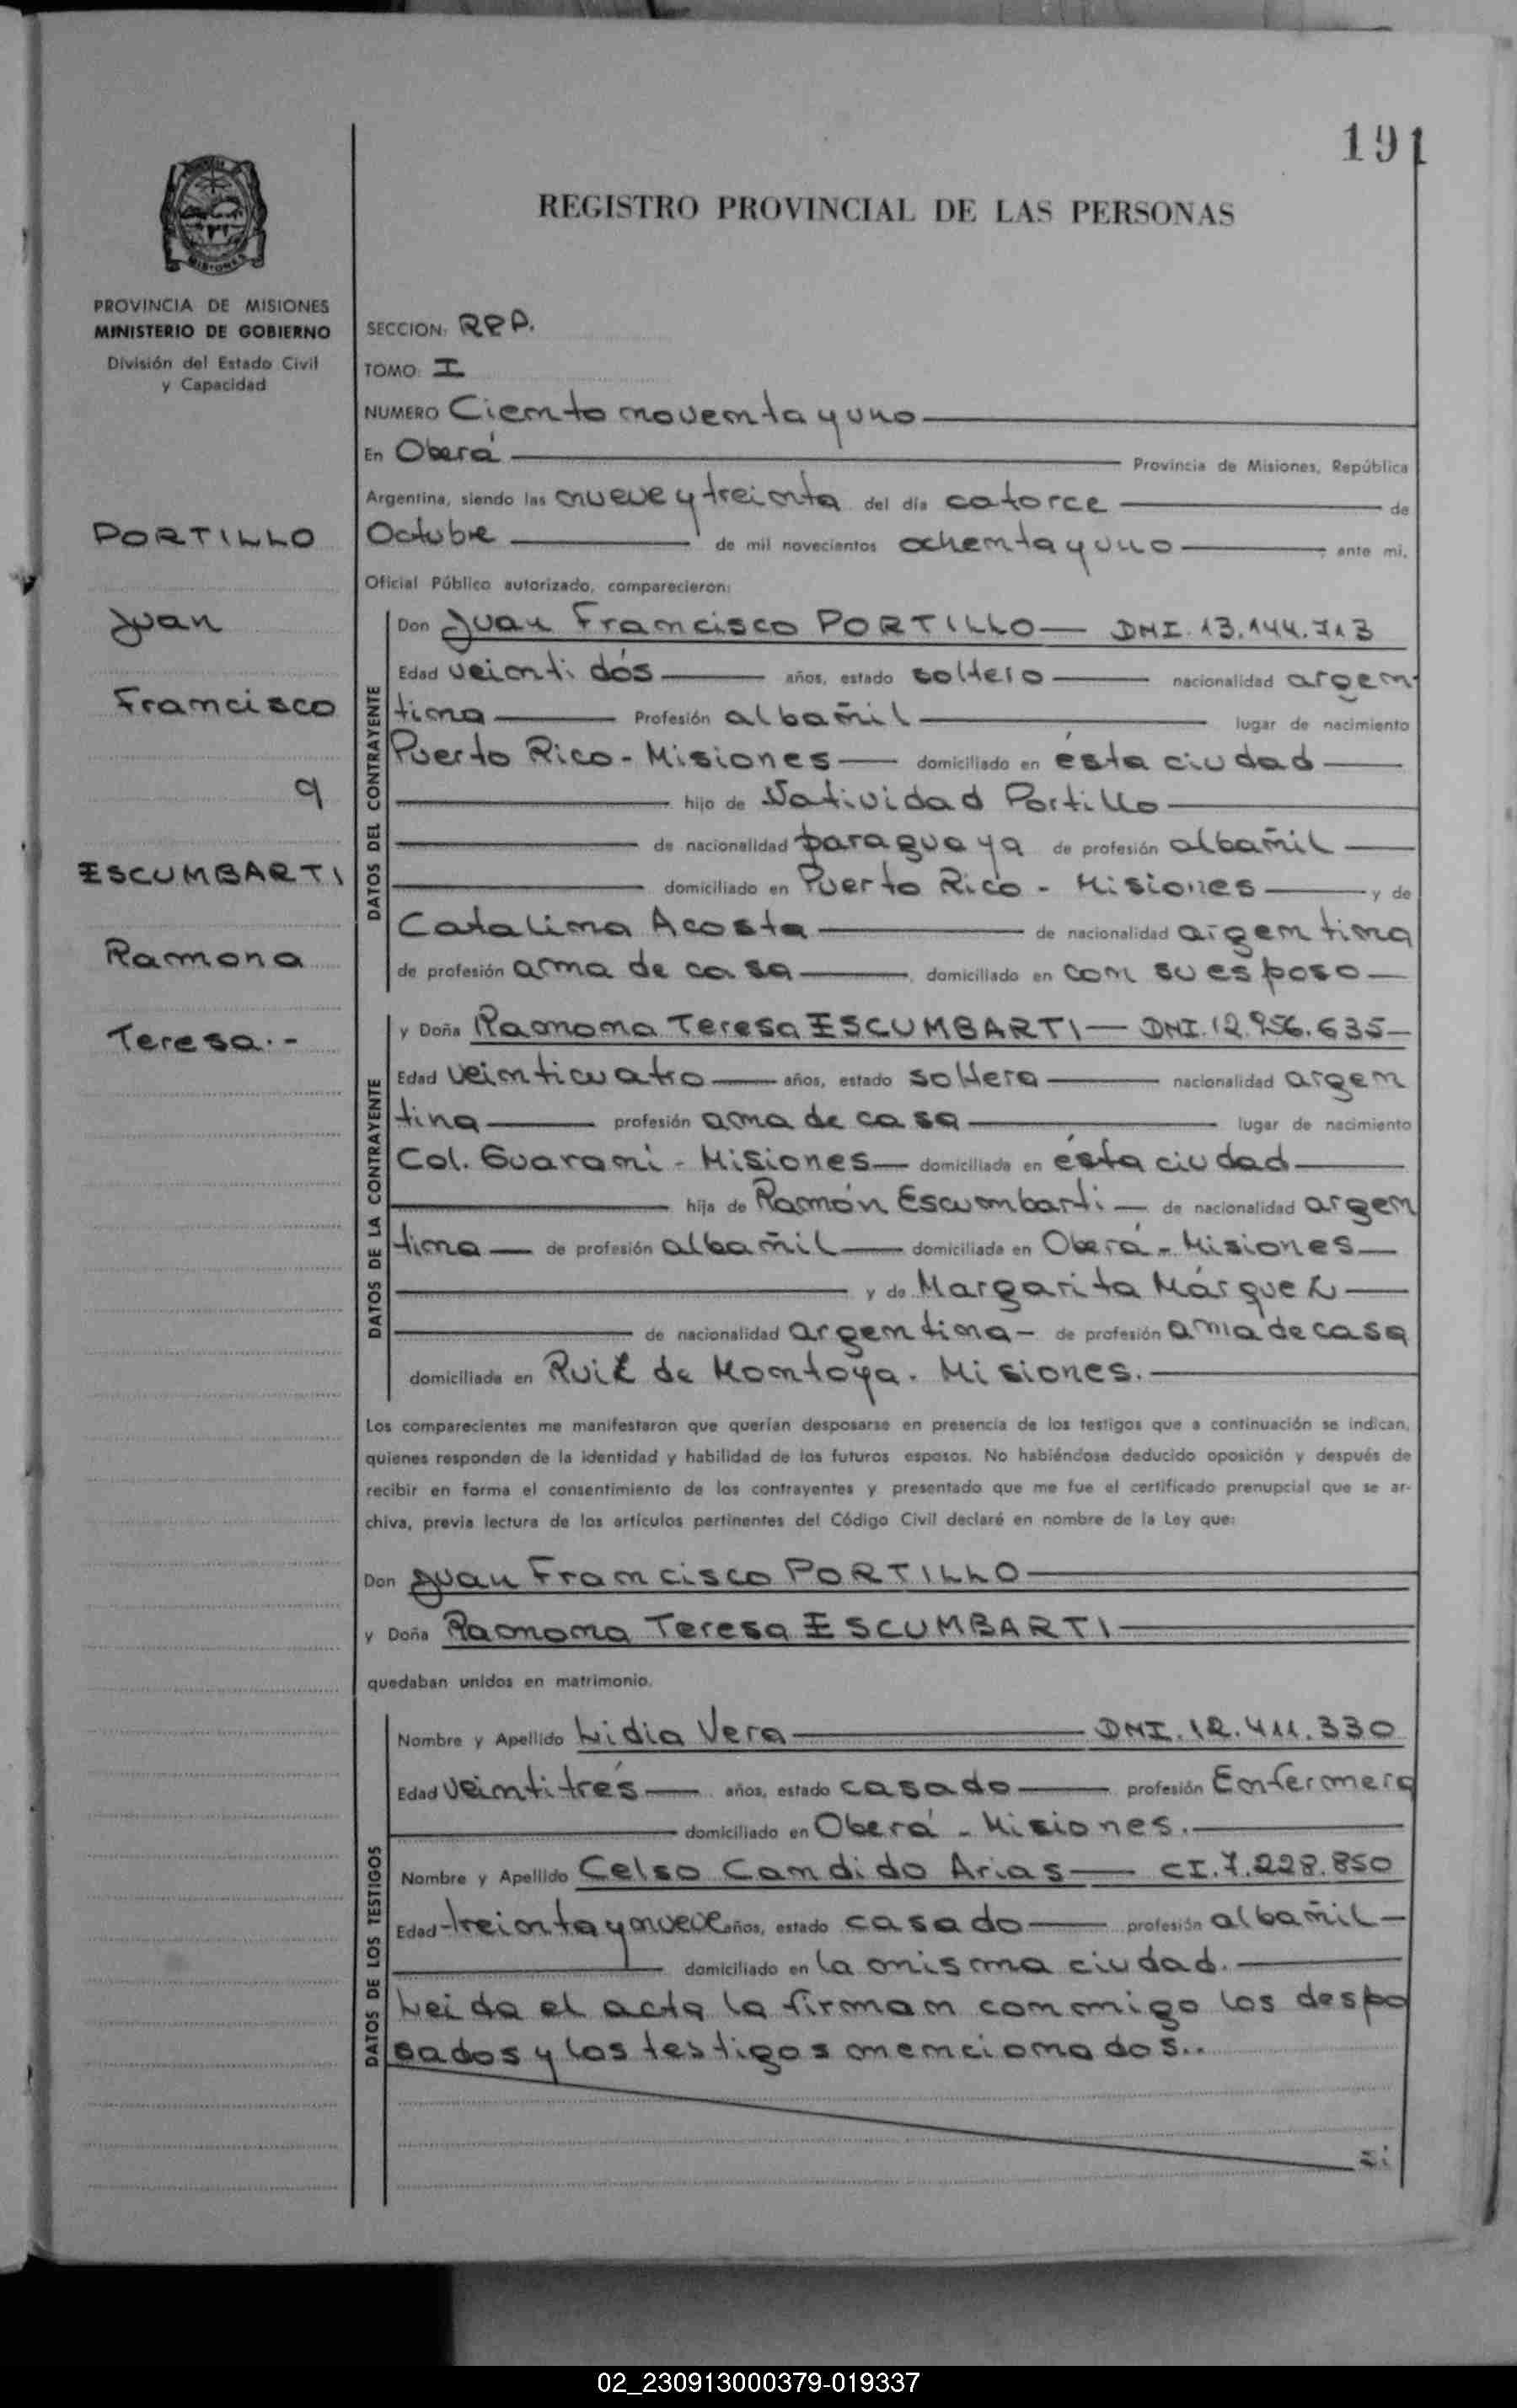 191
REGISTRO PROVINCIAL DE LAS PERSONAS
MISIONES
PROVINCIA DE MISIONES
MINISTERIO DE GOBIERNO
División del Estado Civil
y Capacidad
PORTILLO
Juan
Francisco
ESCUMBARTI
Ramona
Teresa.-
SECCION:
TOMO: I
NUMERO Ciento noventa y uno
En Oberá Provincia de Misiones, República
Argentina, siendo las nueve y treinta del día catorce de
Octubre de mil novecientos ochenta y uno, ante mi,
Oficial Público autorizado, comparecieron:
DATOS DEL CONTRAYENTE
Don Juan Francisco PORTILLO — DNI. 13.144.713
Edad veinti dós años, estado soltero nacionalidad argen
tina Profesión albañil lugar de nacimiento
Puerto Rico - Misiones domiciliado en ésta ciudad
hijo de Natividad Portillo
de nacionalidad paraguaya de profesión albañil
domiciliado en Puerto Rico - Misiones y de
Catalina Acosta de nacionalidad argentina
de profesión ama de casa, domiciliado en con su esposo
DATOS DE LA CONTRAYENTE
y Doña Ramona Teresa ESCUMBARTI — DNI. 12.956.635
Edad veinticuatro años, estado soltera nacionalidad argen
tina profesión ama de casa lugar de nacimiento
Col. Guaraní - Misiones domiciliada en ésta ciudad
hija de Ramón Escumbarti de nacionalidad argen
tina de profesión albañil domiciliada en Oberá - Misiones
y de Margarita Márquez
de nacionalidad argentina de profesión ama de casa
domiciliada en Ruiz de Montoya. Misiones.
Los comparecientes me manifestaron que querían desposarse en presencia de los testigos que a continuación se indican,
quienes responden de la identidad y habilidad de los futuros esposos. No habiéndose deducido oposición y después de
recibir en forma el consentimiento de los contrayentes y presentado que me fue el certificado prenupcial que se ar-
chiva, previa lectura de los artículos pertinentes del Código Civil declaré en nombre de la Ley que:
Don Juan Francisco PORTILLO
y Doña Ramona Teresa ESCUMBARTI
quedaban unidos en matrimonio.
DATOS DE LOS TESTIGOS
Nombre y Apellido Lidia Vera DNI. 12.411.330
Edad veintitrés años, estado casado profesión Enfermera
domiciliado en Oberá - Misiones.
Nombre y Apellido Celso Candido Arias — CI. 7.228.850
Edad treinta y nueve años, estado casado profesión albañil
domiciliado en la misma ciudad.
Leida el acta la firman conmigo los despo
sados y los testigos mencionados..
02_230913000379-019337